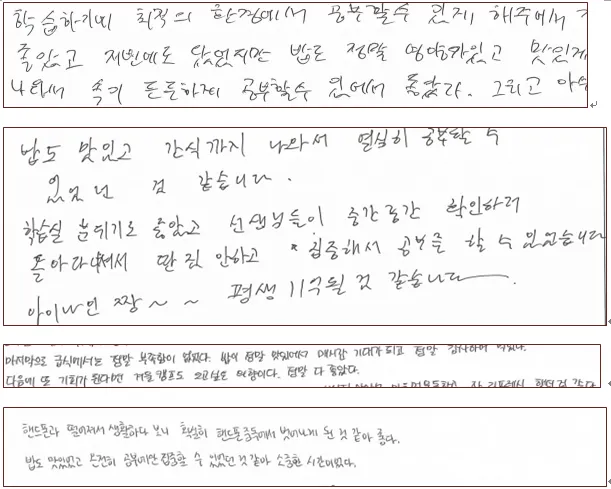 학습하기에 최적의 환경에서 공부할수 있게 해주셔서
좋았고 저번에도 왔었지만 밥도 정말 영양가있고 맛있게
나와서 속이 든든하게 공부할수 있어서 좋았다. 그리고
밥도 맛있고 간식까지 나와서 열심히 공부할 수
있었던 것 같습니다.
학습실 분위기도 좋았고 선생님들이 중간중간 확인하러
돌아다니셔서 딴 짓 안하고 집중해서 공부를 할 수 있었습니다
짱~~ 평생 기억될 것 같습니다
마지막으로 급식에서는 정말 부족함이 없었다. 밥이 정말 맛있어서 매시간 기대가 되고 정말
다음에 또 기회가 된다면 겨울캠프도 오고싶은 마음이다. 정말 다 좋았다.
핸드폰과 떨어져서 생활하다 보니 확실히 핸드폰 중독에서 벗어나게 된 것 같아 좋다.
밥도 맛있었고 온전히 공부에만 집중할 수 있었던 것 같아 소중한 시간이었다.